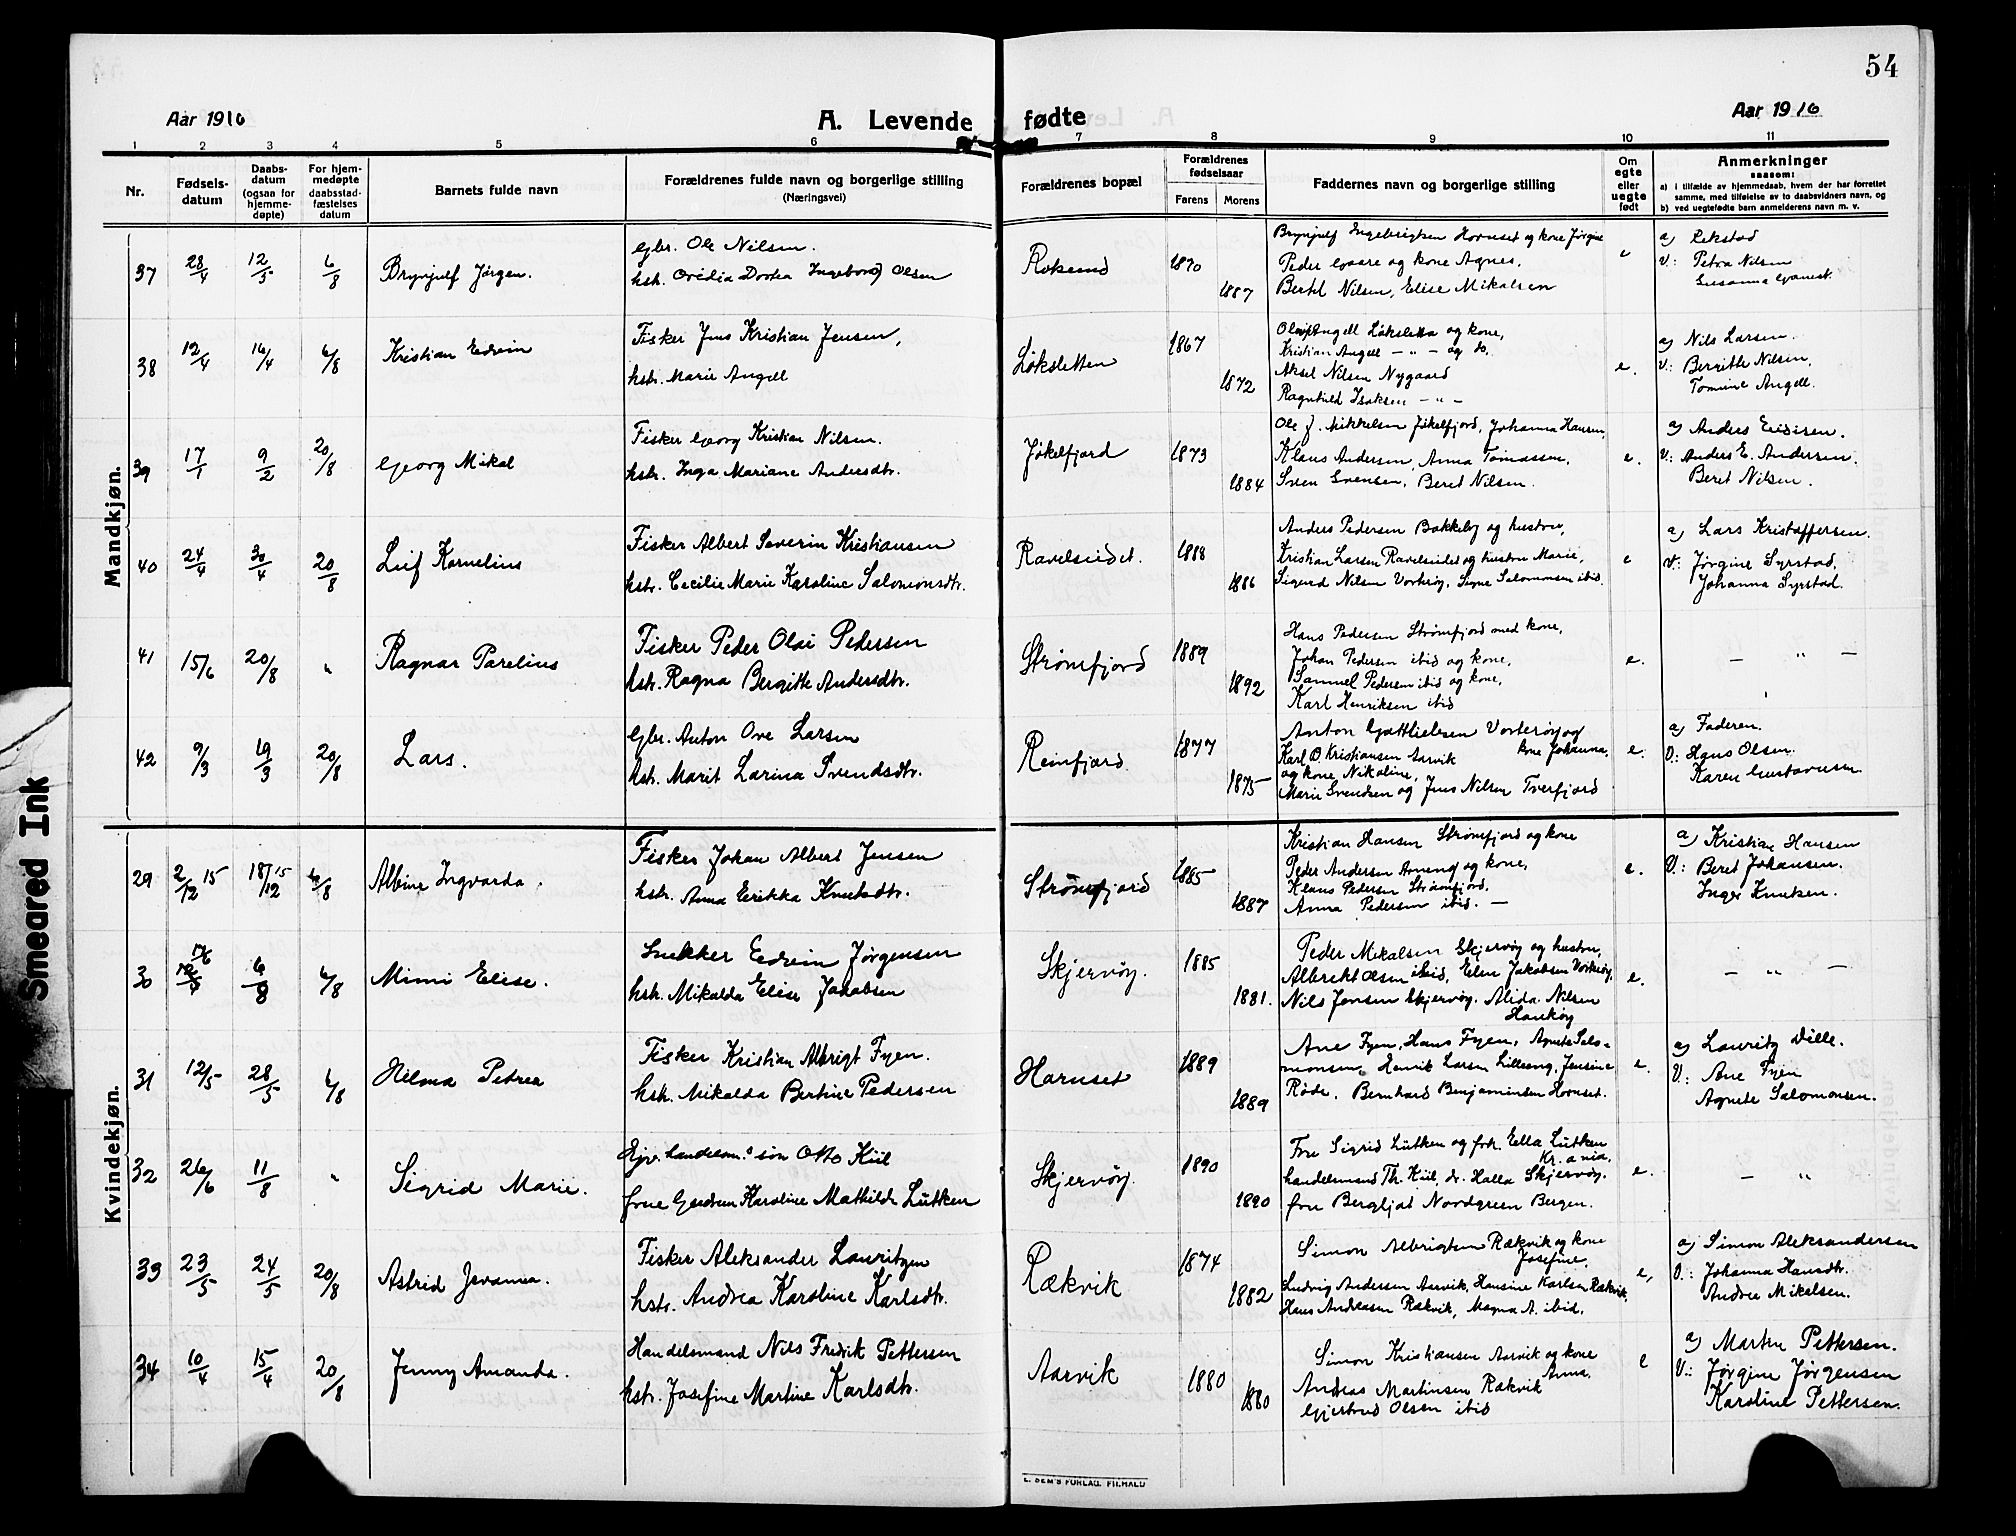 54
Aar 1916
A. Levende fødte
Aar 1916
1 2 3 4 5 6 7 8 9 10 11
Nr.
Fødsels-
datum
Daabs-
datum
(ogsaa for
hjemme-
døpte)
For hjem-
medøpte
daabsstad-
fæstelses
datum
Barnets fulde navn
Forældrenes fulde navn og borgerlige stilling
(Næringsvei)
Forældrenes bopæl
Forældrenes
fødselsaar
Farens Morens
Faddernes navn og borgerlige stilling
Om
egte
eller
uegte
født
Anmerkninger
saasom:
a) i tilfælde av hjemmedaab, hvem der har forrettet
samme, med tilføielse av to daabsvidners navn, og
b) ved uegtefødte barn anmelderens navn m. v.
Mandkjøn.
37 28/4 12/5 6/8 Brynjulf Jørgen.
gbr. Ole Nilsen.
hstr. Dortea Ingeborg Olsen
1890
1887
Brynjulf Ingebrigtsen Hovnset og kone Jørgine
Peder og kone Agnes,
Bertel Nilsen, Elise Mikalsen
e
a) Rekstad
V.: Petra Nilsen
Susanna
38 12/4 16/4 6/8 Kristian Edvin
Fisker Jens Kristian Jensen,
hstr. Marie Angell
Løksletten
1867
1872
Angell Løksletta og kone,
Kristian Angell — „ — og do.
Aksel Nilsen Nygaard
Ragnhild Isaksen — „ —
e.
a) Nils Larsen.
V.: Bergitte Nilsen,
Tomine Angell.
39 17/1 9/2 20/8 Georg Mikal
Fisker Georg Kristian Nilsen.
hstr. Inga Mariane Andersdtr.
Jøkelfjord
1873
1884
Ole J. Mikkelsen Jøkelfjord, Johanna Hansen,
Klaus Andersen, Anna Tomassen,
Sven Svensen, Beret Nilsen.
e.
a) Anders
V.: Anders E. Andersen.
Beret Nilsen.
40 24/4 30/4 20/8 Leif Kornelius
Fisker Albert Severin Kristiansen
hstr. Cecilie Marie Karoline Salomonsdtr.
Ravelseidet.
1888
1886
Anders Pedersen Bakkeby og hustru,
Kristian Larsen Ravelseidet og hustru Marie,
Sigurd Nilsen Vorterøy, Signe Salomonsen ibid.
e
a) Lars Kristoffersen.
V.: Jørgine Syrstad,
Johanna Syrstad.
41 15/6 20/8 „ Ragnar Parelius
Fisker Peder Olai Pedersen
hstr. Ragna Bergitte Andersdtr.
Strømfjord
1889
1892
Hans Pedersen Strømfjord med kone,
Johan Pedersen ibid og kone,
Samuel Pedersen ibid og kone,
Karl Henriksen ibid
e.
— „ —
42 9/3 19/3 20/8 Lars.
gbr. Anton Ove Larsen
hstr. Marit Larina Svendsdtr.
Reinfjord.
1877
1875
Anton Gottliebsen Vorterøy og
kone Johanna,
Karl O. Kristiansen Aarvik
og kone Nikoline,
Marie Svendsen og Jens Nilsen Tverfjord
e.
a) Faderen.
V.: Hans Olsen.
Karen Gustavsen
Kvindekjøn.
29 2/12 15 18/12 15 6/8 Albine Ingvarda.
Fisker Johan Albert Jensen
hstr. Anna Erikka Knutsdtr.
Strømfjord
1885
1887
Kristian Hansen Strømfjord og kone
Peder Andersen og kone,
Klaus Pedersen Strømfjord,
Anna Pedersen ibid. —
e.
a) Kristian Hansen
V.: Beret Johansen.
Inger Knutsen.
30 17/6 6/8 6/8 Mimi Elise.
Snekker Edvin Jørgensen
hstr. Mikalda Elise Jakobsen
Skjervøy.
1885
1881.
Peder Mikalsen Skjervøy og hustru,
Albrekt Olsen ibid, Elen Jakobsen Vorterøy,
Nils Jensen Skjervøy. Alida Nilsen
Haukøy
e.
— „ —
31 12/5 28/5 6/8 Helma Petrea
Fisker Kristian Albrigt Fyen.
hstr. Mikalda Bertine Pedersen
Havnset
1889
1889
Ane Fyen, Hans Fyen, Agnete Salo-
monsen, Henrik Larsen Lilleeng, Jensine
Røde, Bernhard Benjaminsen Hovnset.
e.
a) Lauritz Dille.
V.: Ane Fyen
Agnete Salomonsen.
32 26/6 11/8 „ Sigrid Marie.
Ejv. handelsm.s søn Otto Kiil
frue Gudrun Karoline Mathilde Lütken
Skjervøy.
1890
1890
Fru Sigrid Lütken og frk. Ella Lütken
Kr.ania,
handelsmand Th. Kiil, dr. Halla Skjervøy.
fru Bergljot Nordgreen Bergen.
e.
— „
33 23/5 24/5 20/8 Astrid Jovanna.
Fisker Aleksander Lauritzen
hstr. Andrea Karoline Karlsdtr.
Rækvik
1874
1882
Simon Albrigtsen Rækvik og kone
Josefine,
Ludvig Andersen Aarvik, Hansine Karlsen Rækvik,
Hans Andreasen Rækvik, Magna A. ibid.
e,
a) Simon Aleksandersen
V.: Johanna Hansdtr.
Andrea Mikelsen.
34 10/4 15/4 20/8 Jenny Amanda.
Handelsmand Nils Fredrik Pettersen
hstr. Josefine Martine Karlsdtr.
Aarvik
1880
1880
Simon Kristiansen Aarvik og kone
Anna,
Andreas Martinsen Rækvik
Gjertrud Olsen ibid
e
a) Marten Pettersen.
V.: Jørgine Jørgensen
Karoline Pettersen.
E. SEM'S FORLAG, FR.HALD
Smeared Ink